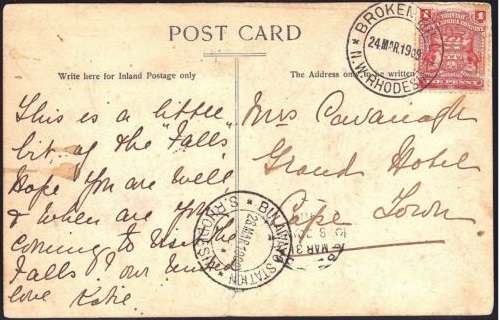 POST CARD
Write here for Inland Postage only
The Address only to be written
BROKEN
24 MAR 1909
N.W. RHODES
BRITISH
SOUTH AFRICA COMPANY
PENNY
This is a little
bit of the "Falls"
Hope you are well
& when are you
coming to see the
Falls? our united
love Katie.
Mrs Cavanagh
Grand Hotel
Cape Town.
BULAWAYO STATION
MAR 1909
S. RHODESIA
MAR 3